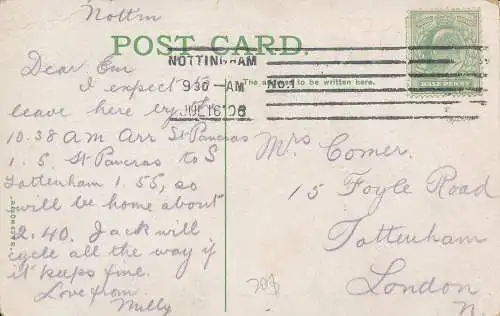 Nottm
POST CARD.
NOTTINGHAM
9 30 - AM
No. 1
JUL 16 06
HALF PENNY
The address to be written here.
Dear Em
I expect to
leave here by the
10.38 am Arr St Pancras
1.5. St Pancras to S
Tottenham 1.55, so
will be home about
2.40. Jack will
cycle all the way if
it keeps fine.
Love from
Milly
Mrs Comer.
15 Foyle Road
Tottenham
London
N.